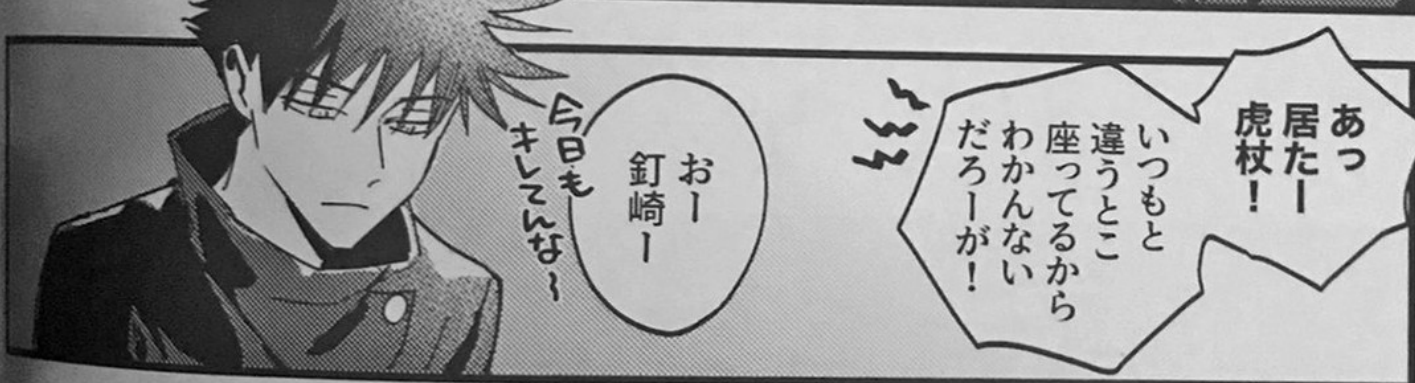 あっ
居たー
虎杖！
いつもと
違うとこ
座ってるから
わかんない
だろーが！
おー
釘崎ー
今日も
キレてんな〜